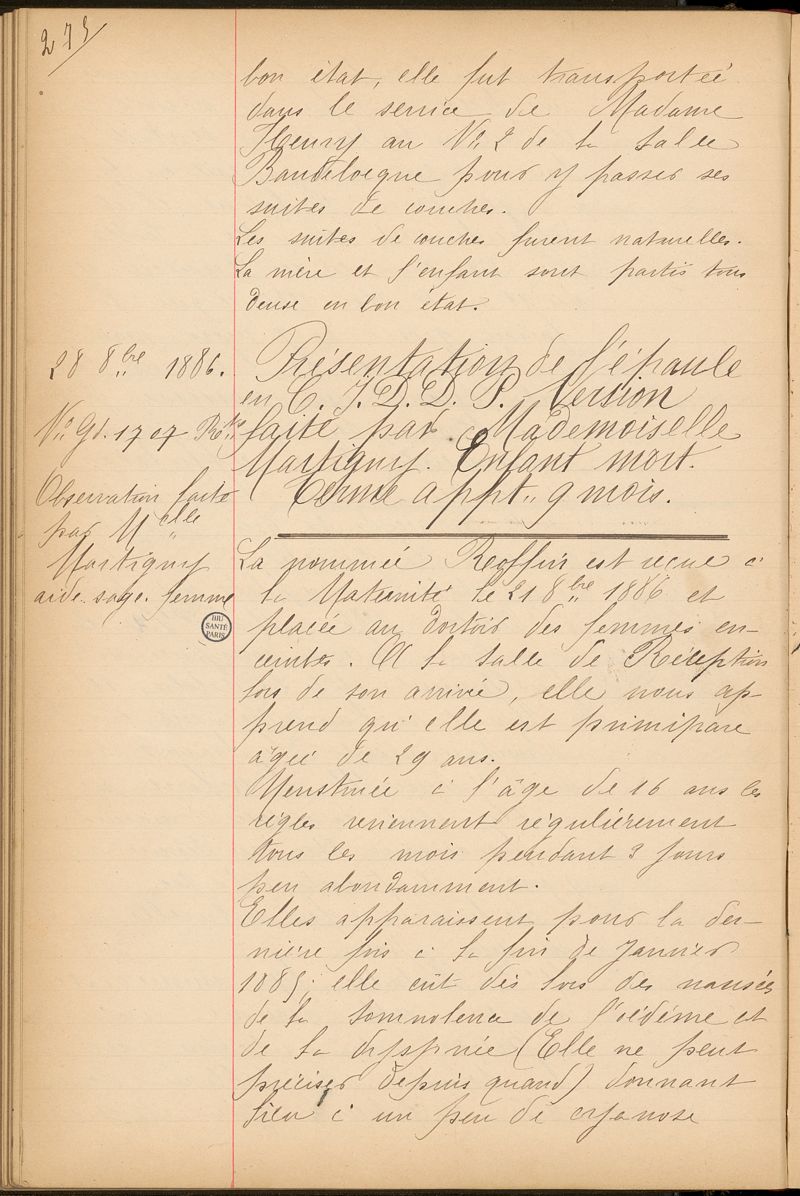 275
bon état, elle fut transportée
dans le service de Madame
Henry au No 2 de la salle
Baudelocque pour y passer ses
suites de couches.
Les suites de couches furent naturelles.
La mère et l'enfant sont partis tous
deuse en bon état.
28 8bre 1886.
No Gd. 1707 Rts
Observation faite
par Melle
Martigny
aide sage-femme
BIU
SANTÉ
PARIS
Présentation de l'épaule
en E. I. D. D. P. Version
faite par Mademoiselle
Martigny. Enfant mort.
Terme appt. 9 mois.
La nommée Roffin est reçue à
la Maternité le 21 8bre 1886 et
placée au dortoir des femmes en-
ceintes. A la salle de Réception
lors de son arrivée, elle nous ap-
prend qu'elle est primipare
âgée de 29 ans.
Menstruée à l'âge de 16 ans les
règles reviennent régulièrement
tous les mois pendant 3 jours
peu abondamment.
Elles apparaissent pour la der-
nière fois à la fin de Janvier
1885; elle eût dès lors des nausées
de la somnolence de l'oédème et
de la dyspnée (Elle ne peut
préciser depuis quand) donnant
lieu à un peu de cyanose